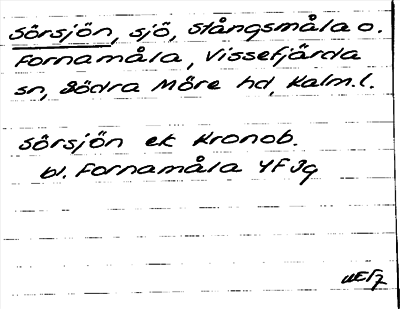 Sörsjön, sjö, Stångsmåla o.
Fornamåla, Vissefjärda
sn, Södra Möre hd, Kalm.l.
Sörsjön ek Kronob.
bl. Fornamåla 4F3g